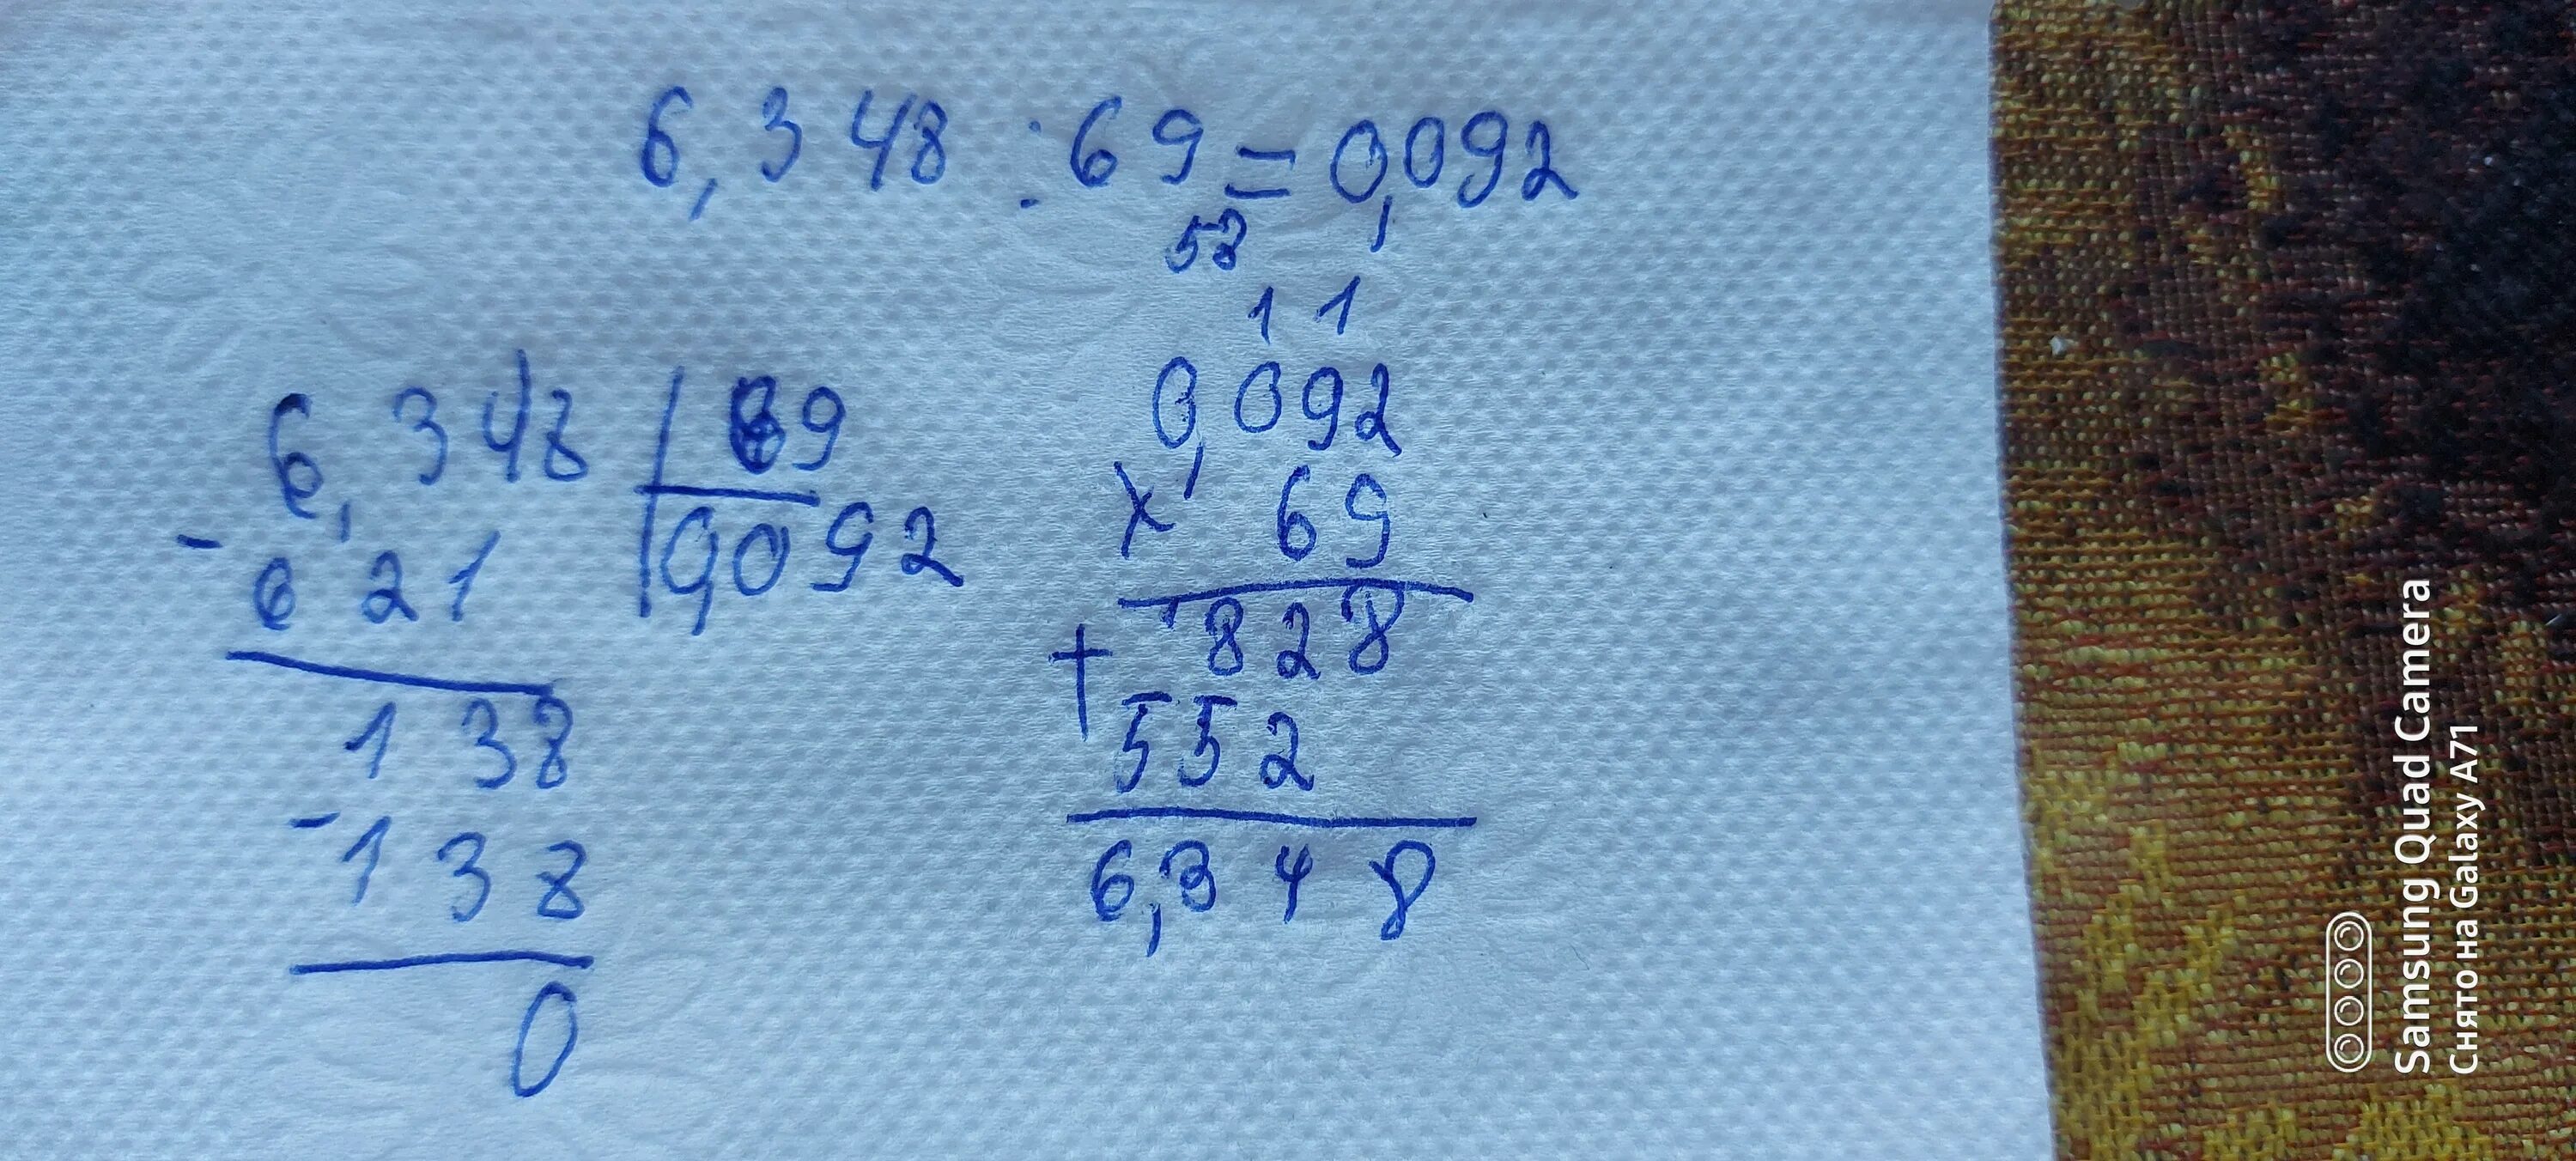 6,348 : 69 = 0,092
58
6,348 | 69
- 621 | 0,092
138
- 138
0
1 1
0,092
x 69
828
+ 552
6,348
Samsung Quad Camera
Снято на Galaxy A71